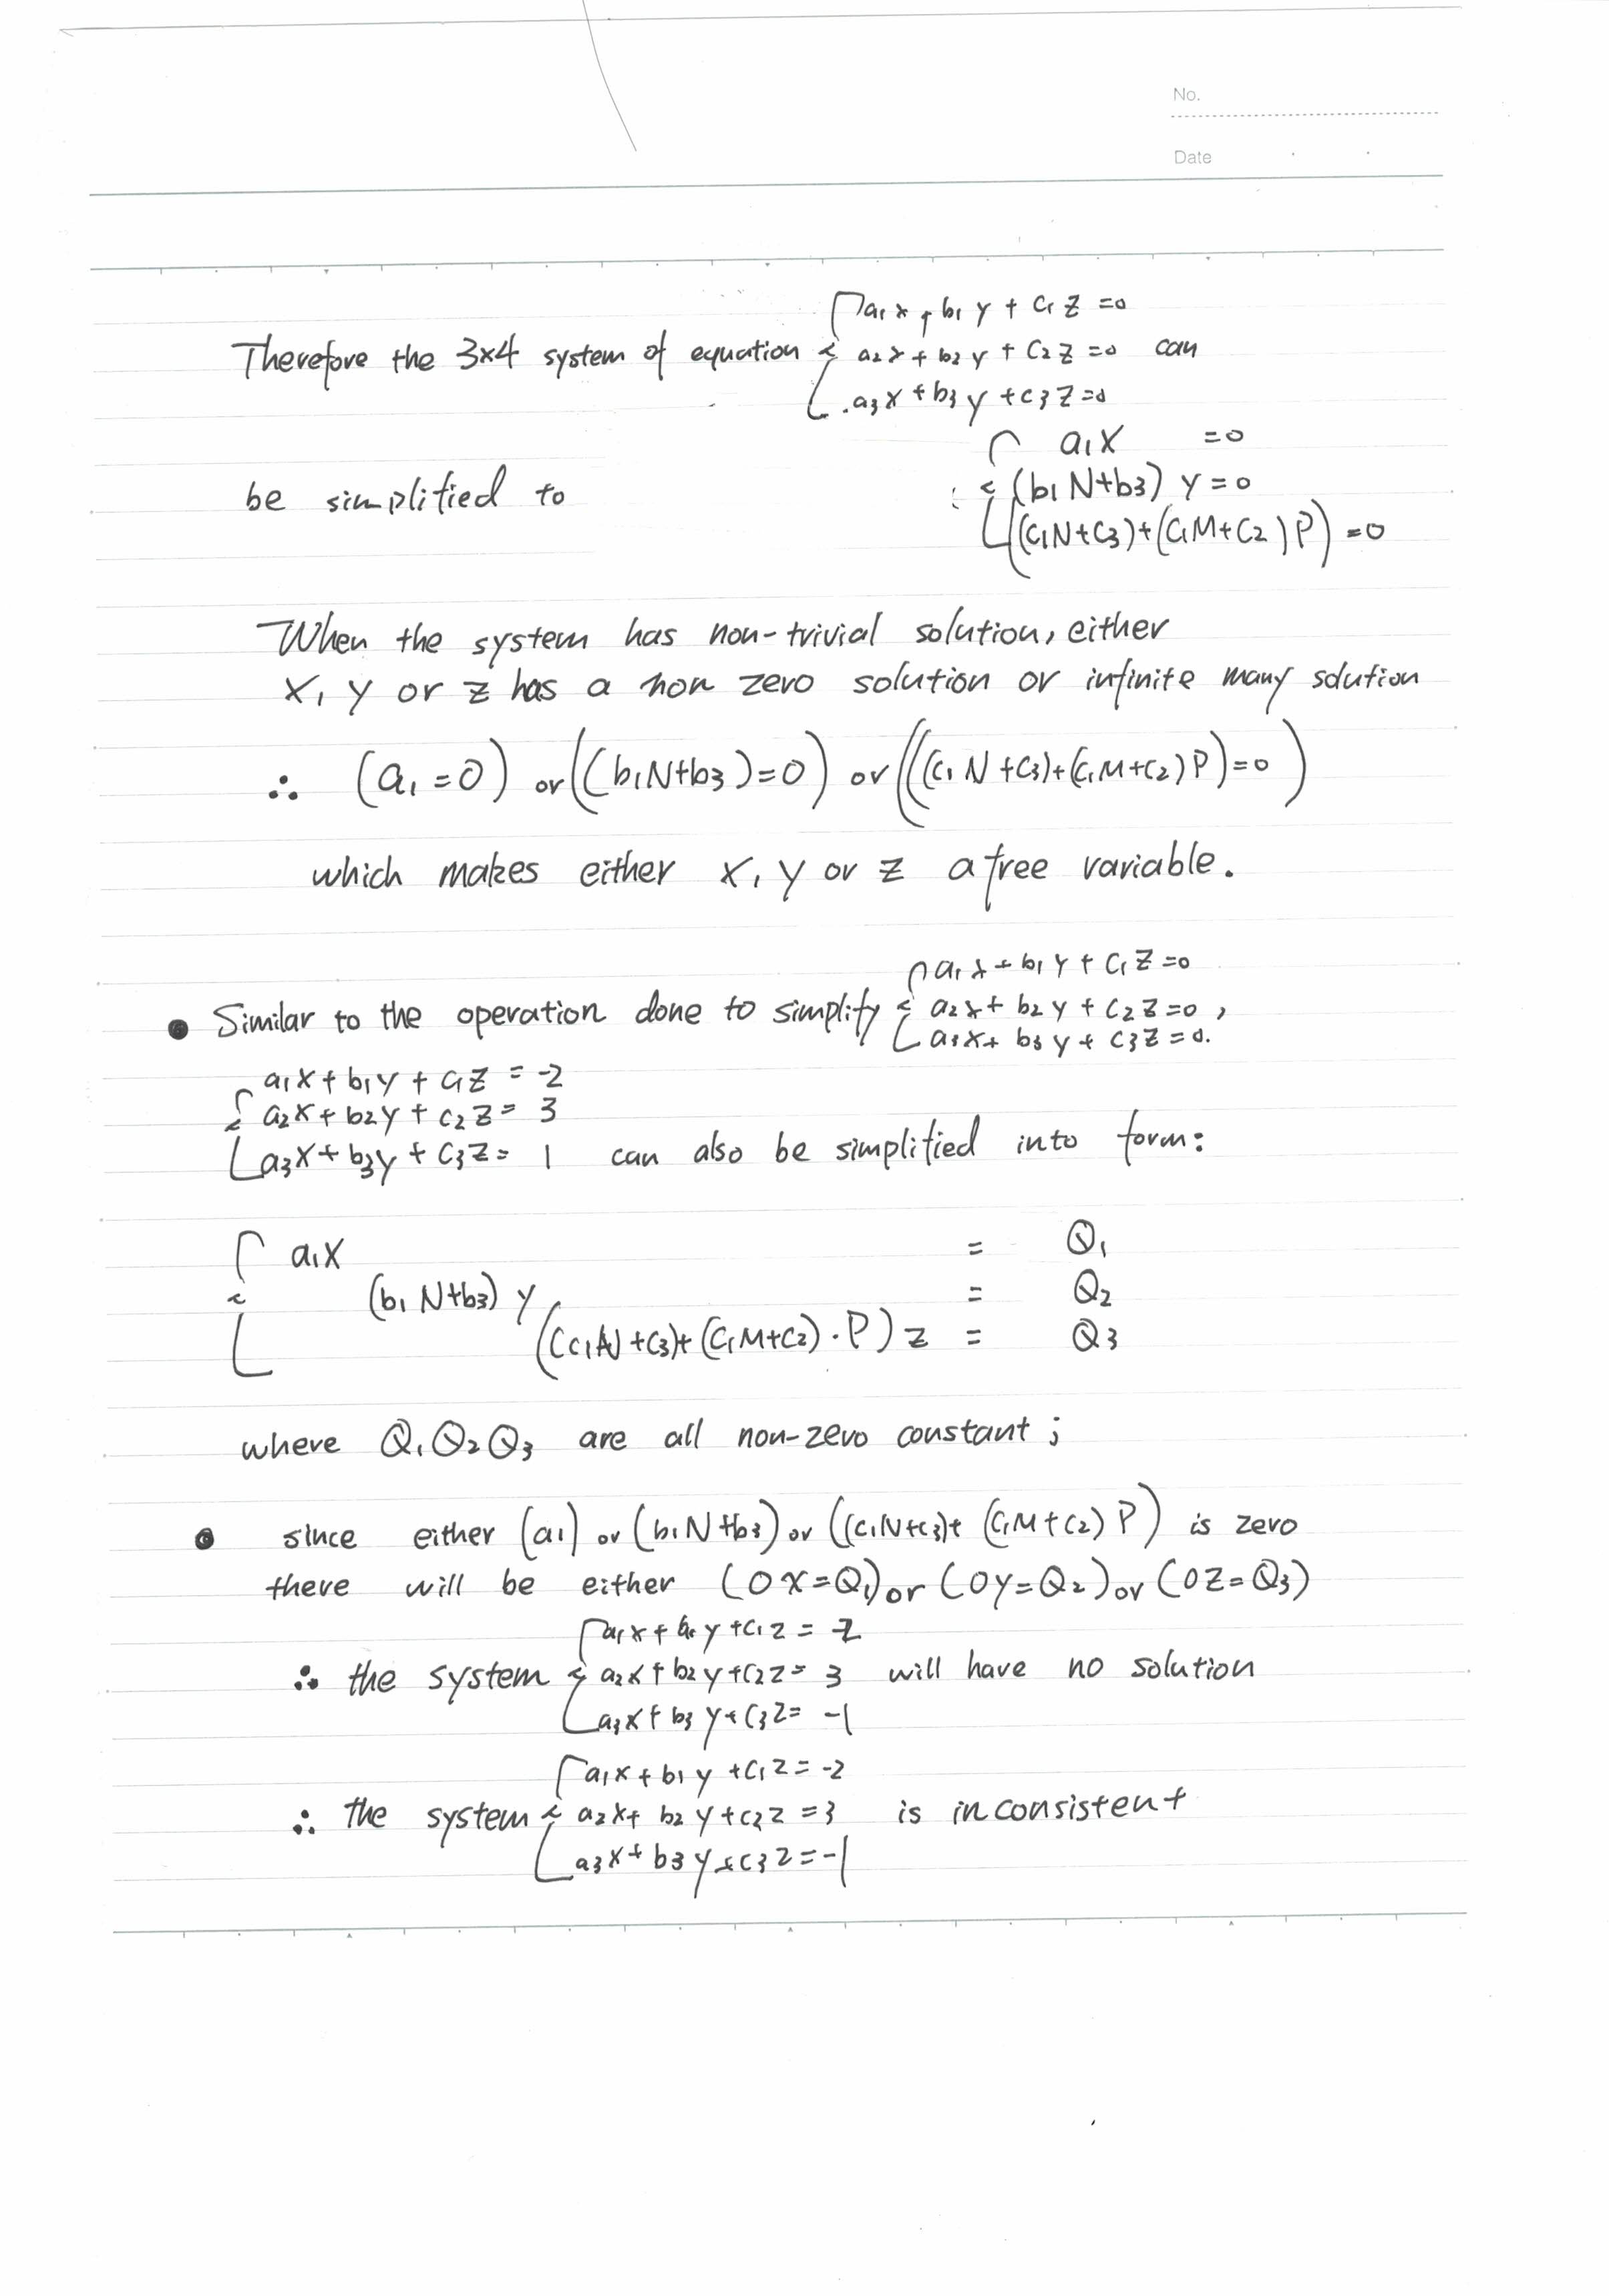 No.
Date
a1x + b1y + c1z =0
Therefore the 3x4 system of equation { a2x + b2y + c2z =0 can
a3x + b3y + c3z =0
a1x =0
be simplified to { (b1N+b3) y = 0
((c1N+c3)+(c1M+c2)P) =0
When the system has non-trivial solution, either
x, y or z has a non zero solution or infinite many solution
∴ (a1 =0) or ((b1N+b3)=0) or (((c1N+c3)+(c1M+c2)P)=0)
which makes either x, y or z a free variable.
a1x + b1y + c1z =0
• Similar to the operation done to simplify { a2x + b2y + c2z =0 ,
a3x + b3y + c3z =0.
a1x + b1y + c1z = -2
{ a2x + b2y + c2z = 3
a3x + b3y + c3z = 1 can also be simplified into form:
a1x = Q1
{ (b1N+b3) y = Q2
((c1N+c3)+(c1M+c2)·P) z = Q3
where Q1Q2Q3 are all non-zero constant ;
• since either (a1) or (b1N+b3) or ((c1N+c3)+(c1M+c2)P) is zero
there will be either (0x=Q1) or (0y=Q2) or (0z=Q3)
a1x + b1y + c1z = -2
∴ the system { a2x + b2y + c2z = 3 will have no solution
a3x + b3y + c3z = -1
a1x + b1y + c1z = -2
∴ the system { a2x + b2y + c2z = 3 is inconsistent
a3x + b3y + c3z = -1